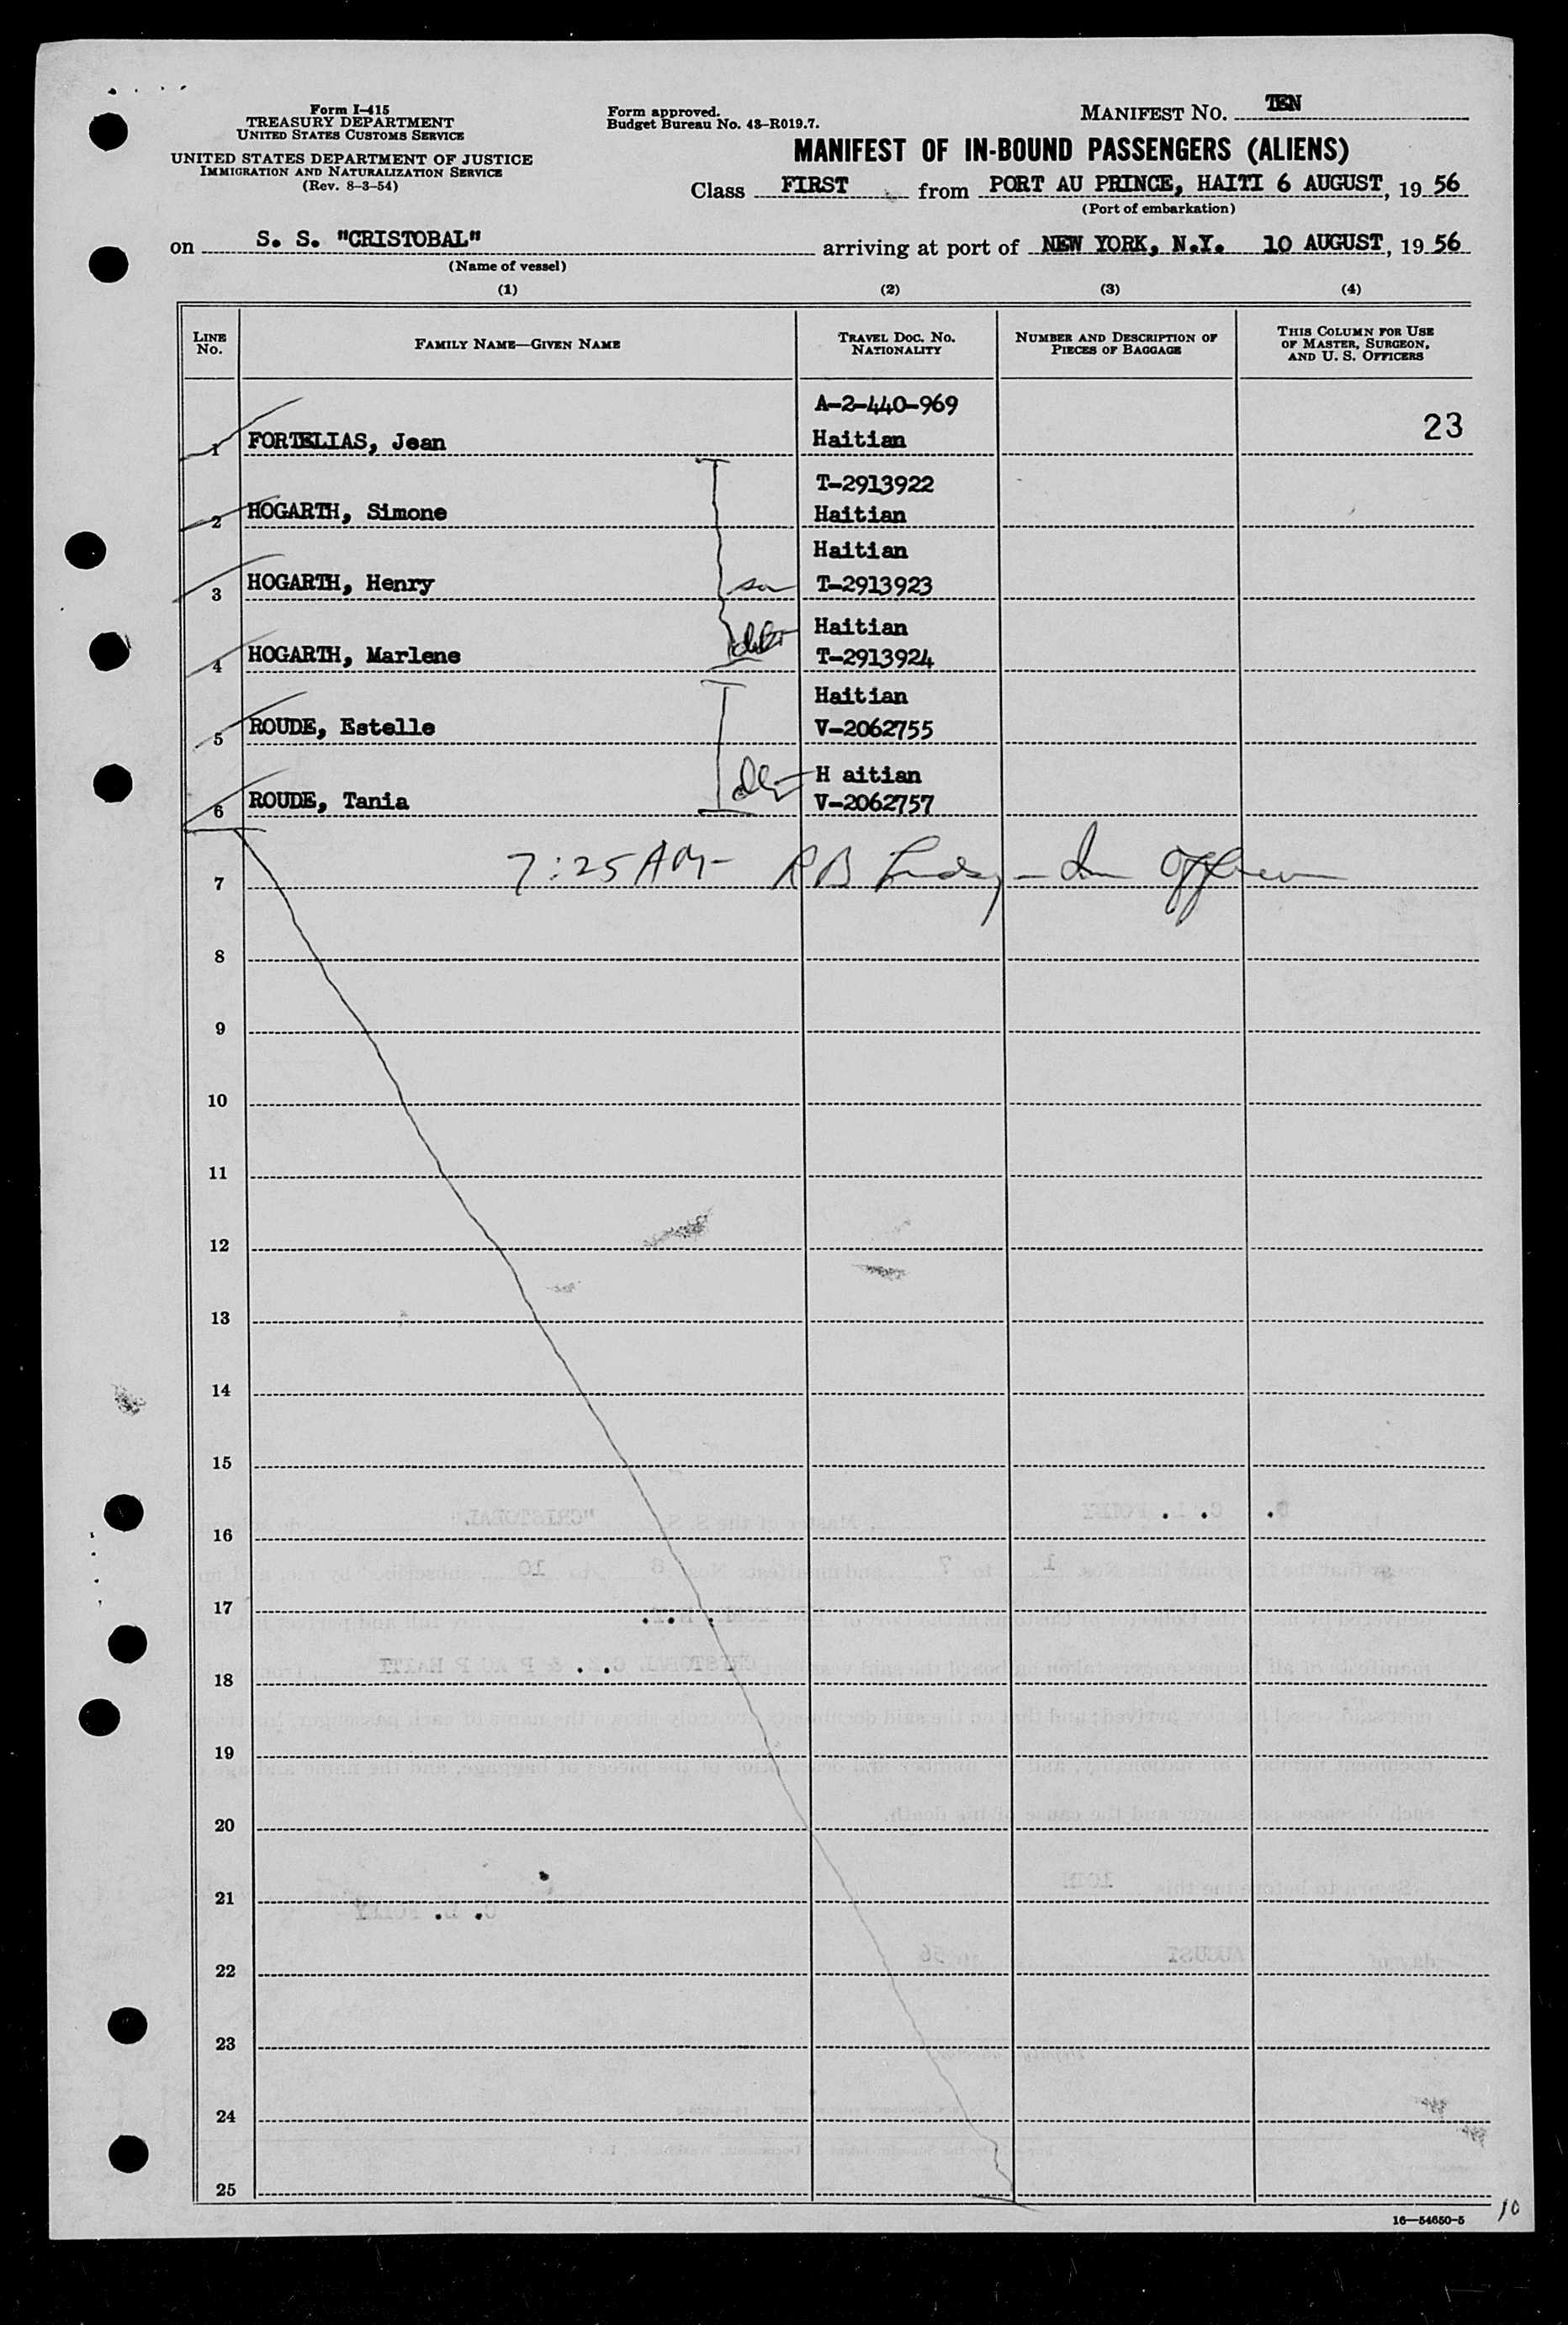 Form I-415
TREASURY DEPARTMENT
UNITED STATES CUSTOMS SERVICE
UNITED STATES DEPARTMENT OF JUSTICE
IMMIGRATION AND NATURALIZATION SERVICE
(Rev. 8-3-54)
Form approved.
Budget Bureau No. 43-R019.7.
MANIFEST NO. TEN
MANIFEST OF IN-BOUND PASSENGERS (ALIENS)
Class FIRST from PORT AU PRINCE, HAITI 6 AUGUST, 19 56
(Port of embarkation)
on S. S. "CRISTOBAL" arriving at port of NEW YORK, N.Y. 10 AUGUST, 19 56
(Name of vessel)
(1) (2) (3) (4)
LINE No. FAMILY NAME—GIVEN NAME TRAVEL DOC. NO. NATIONALITY NUMBER AND DESCRIPTION OF PIECES OF BAGGAGE THIS COLUMN FOR USE OF MASTER, SURGEON, AND U. S. OFFICERS
A-2-440-969
1 FORTELIAS, Jean Haitian 23
T-2913922
2 HOGARTH, Simone Haitian
Haitian
3 HOGARTH, Henry T-2913923
Haitian
4 HOGARTH, Marlene T-2913924
Haitian
5 ROUDE, Estelle V-2062755
H aitian
6 ROUDE, Tania V-2062757
7 7:25 AM- R B
8
9
10
11
12
13
14
15
16
17
18
19
20
21
22
23
24
25
16—54650-5
10